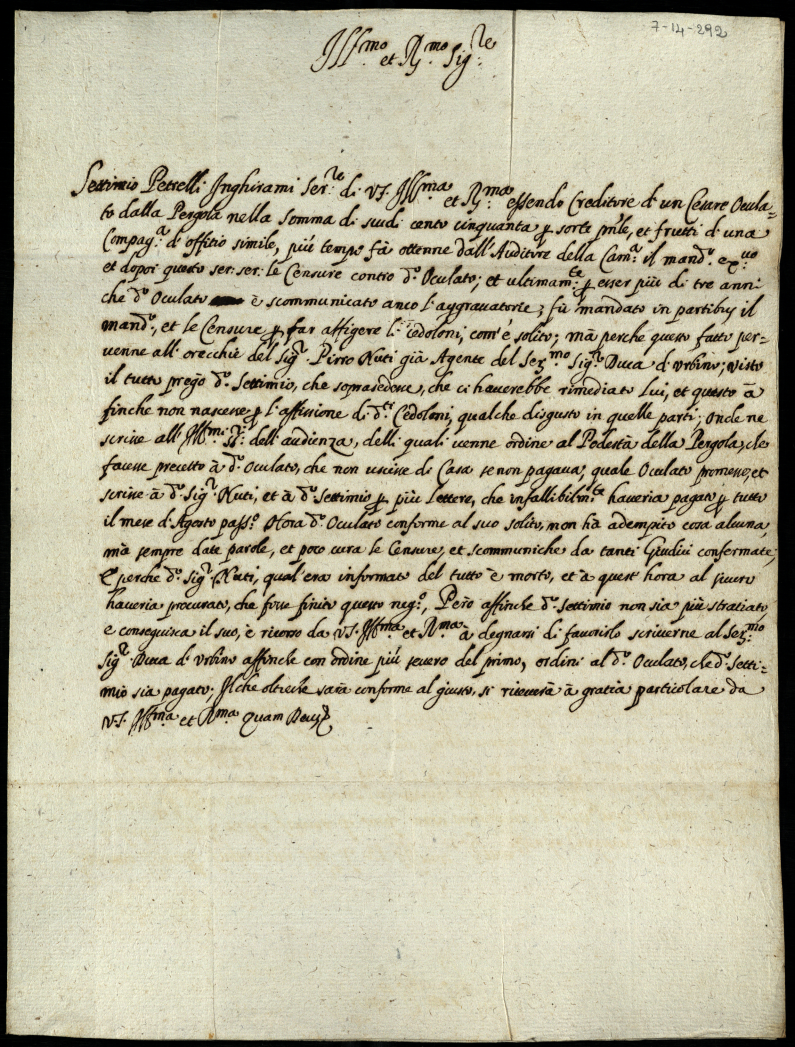 7-14-292
Ill.mo et R.mo Sig.re
Settimio Petrelli Inghirami Ser.re di V.S. Ill.ma et R.ma essendo Creditore d'un Cesare Ocula=
to dalla Pergola nella somma di scudi cento cinquanta p sorte pn̄le, et frutti d'una
Compag.a d'offitio simile, più tempo fà ottenne dall'Auditore della Cam.a il mand.o ex.uo
et dopoi questo ser: ser: le Censure contro d.o Oculato; et ultimam.te p esser più di tre anni
che d.o Oculato è scommunicato anco l'aggravatorie; fù mandato in partibus il
mand.o, et le Censure p far affigere li cedoloni, com'è solito; mà perche questo fatto per=
venne all'orecchie del Sig.r Pirro Nuti già Agente del Ser.mo Sig.r Duca d'Urbino; visto
il tutto pregò d.o Settimio, che soprasedesse, che ci haverebbe rimediato lui, et questo à
finche non nascesse p l'affissione di d.ti Cedoloni, qualche disgusto in quelle parti; Onde ne
scrisse all'Ill.mi SS.ri dell'audienza, delli quali venne ordine al Podestà della Pergola, che
facesse precetto à d.o Oculato, che non uscisse di Casa se non pagava, quale Oculato promesse, et
scrisse à d.o Sig.r Nuti, et à d.o Settimio p più lettere, che infallibilm.te haveria pagato p tutto
il mese d'Agosto pass.o Hora d.o Oculato conforme al suo solito, non hà adempito cosa alcuna,
mà sempre date parole, et poco cura le Censure, et scommuniche da tanti Giudici confermate;
E perche d.o Sig.r Nuti, qual'era informato del tutto è morto, et à quest'hora al sicuro
haveria procurato, che fosse finito questo neg.o, Però affinche d.o Settimio non sia più stratiato,
e conseguisca il suo, è ricorso da V.S. Ill.ma et R.ma à degnarsi di favorirlo scriverne al Ser.mo
Sig.r Duca d'Urbino affinche con ordine più severo del primo, ordini al d.o Oculato, che d.o Setti=
mio sia pagato; Il che oltre che sarà conforme al giusto, si riceverà à gratia particolare da
V.S. Ill.ma et R.ma Quam Deus